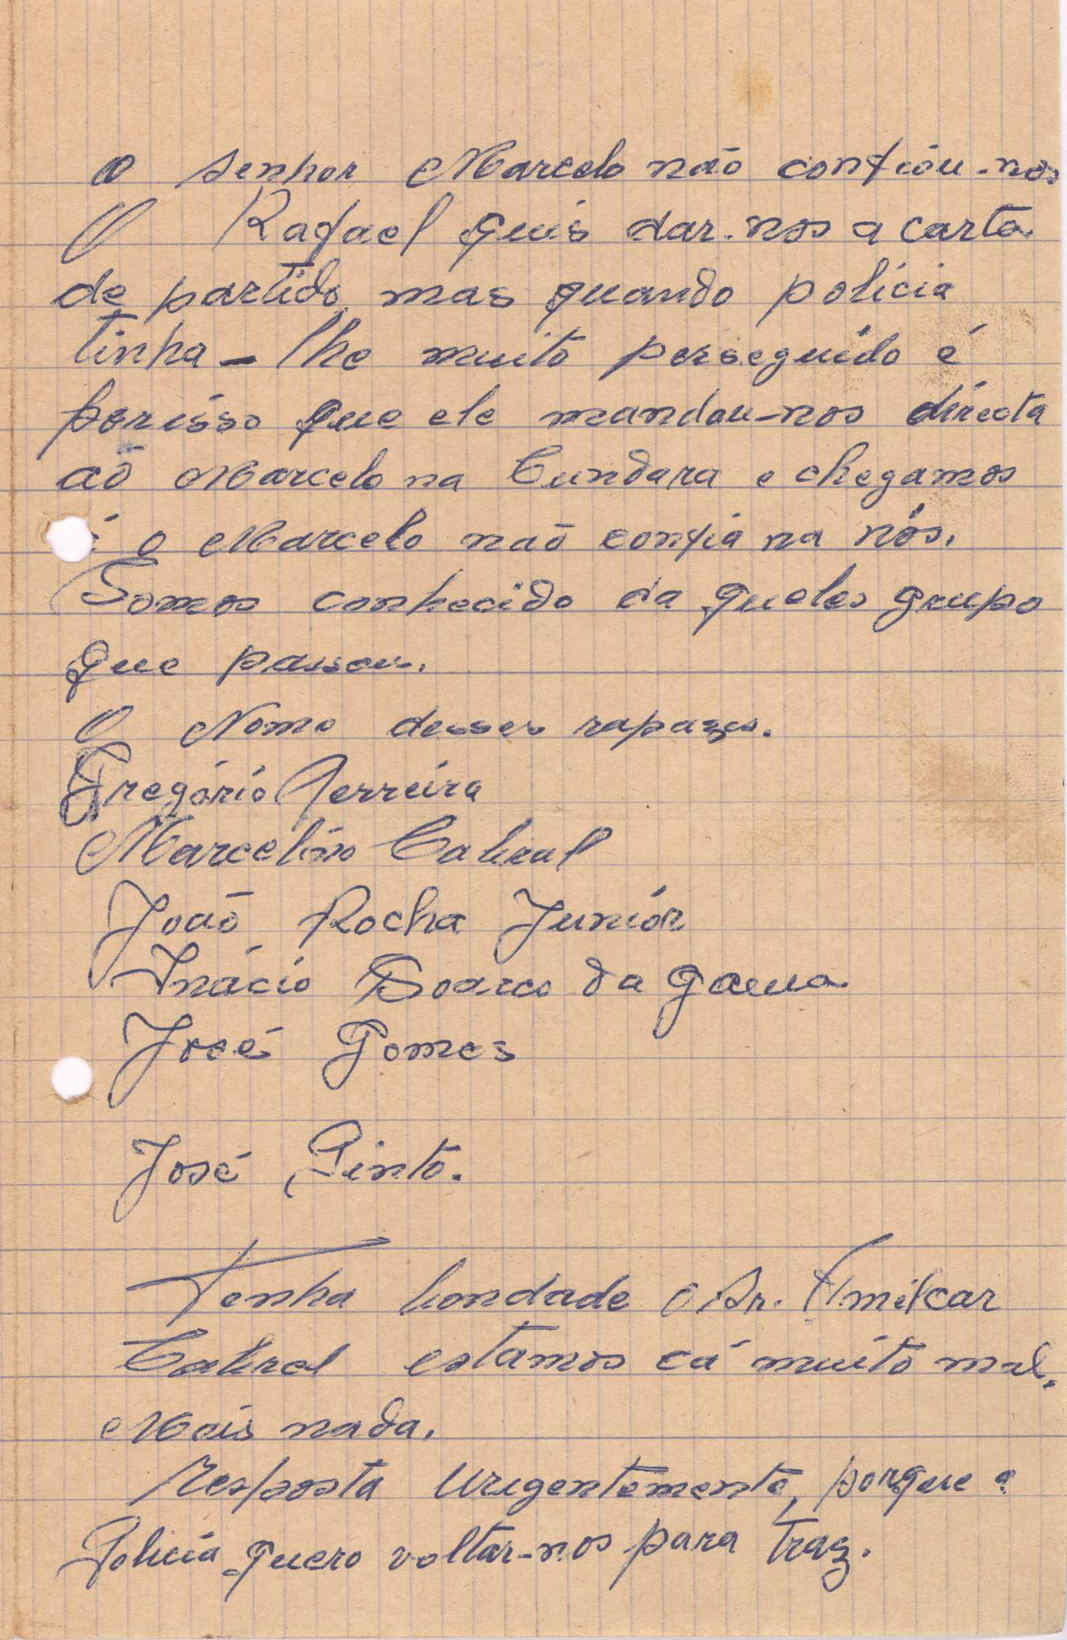 O senhor Marcelo não confiou-nos
O Rafael quis dar-nos a carta
de partido, mas quando policia
tinha-lhe muito perseguido é
porisso que ele mandou-nos directa
aõ Marcelo na Cundara e chegamos
é o Marcelo naõ confia na nós.
Somos conhecido da queles grupo
que passou.
O Nome desses rapazes.
Gregório Ferreira
Marcelino Cabral
João Rocha Juniór
Inácio Soares da Gama
José Gomes
José Pinto.
Tenha bondade ó Sr. Amilcar
Cabral estamos cá muito mal.
Mais nada.
Resposta Urigentemente, porque a
Policia quero voltar-nos para traz.